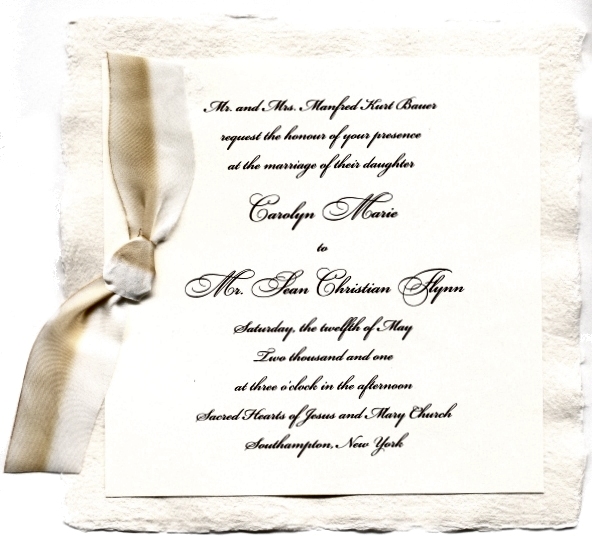 Mr. and Mrs. Manfred Kurt Bauer
request the honour of your presence
at the marriage of their daughter
Carolyn Marie
to
Mr. Sean Christian Flynn
Saturday, the twelfth of May
Two thousand and one
at three o'clock in the afternoon
Sacred Hearts of Jesus and Mary Church
Southampton, New York